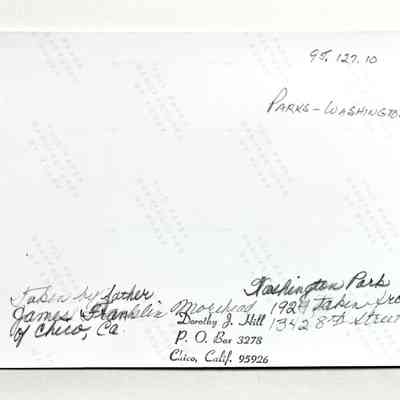 95.127.10
PARKS - WASHINGTO
Taken by father
James Franklin Morehead
of Chico, Ca.
Washington Park
1924 Taken
1342 8th Street
Dorothy J. Hill
P. O. Box 3278
Chico, Calif. 95926